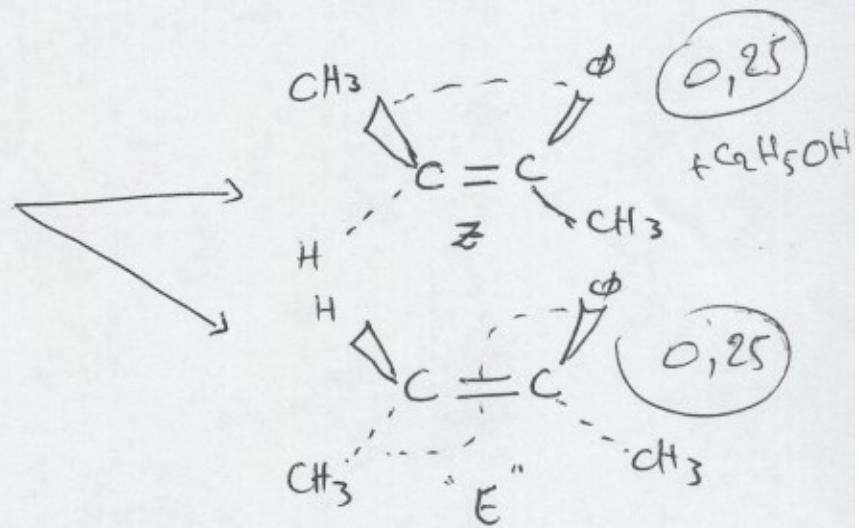 CH3 Φ 0,25
C = C + C2H5OH
H Z CH3
H Φ
C = C 0,25
CH3 "E" CH3